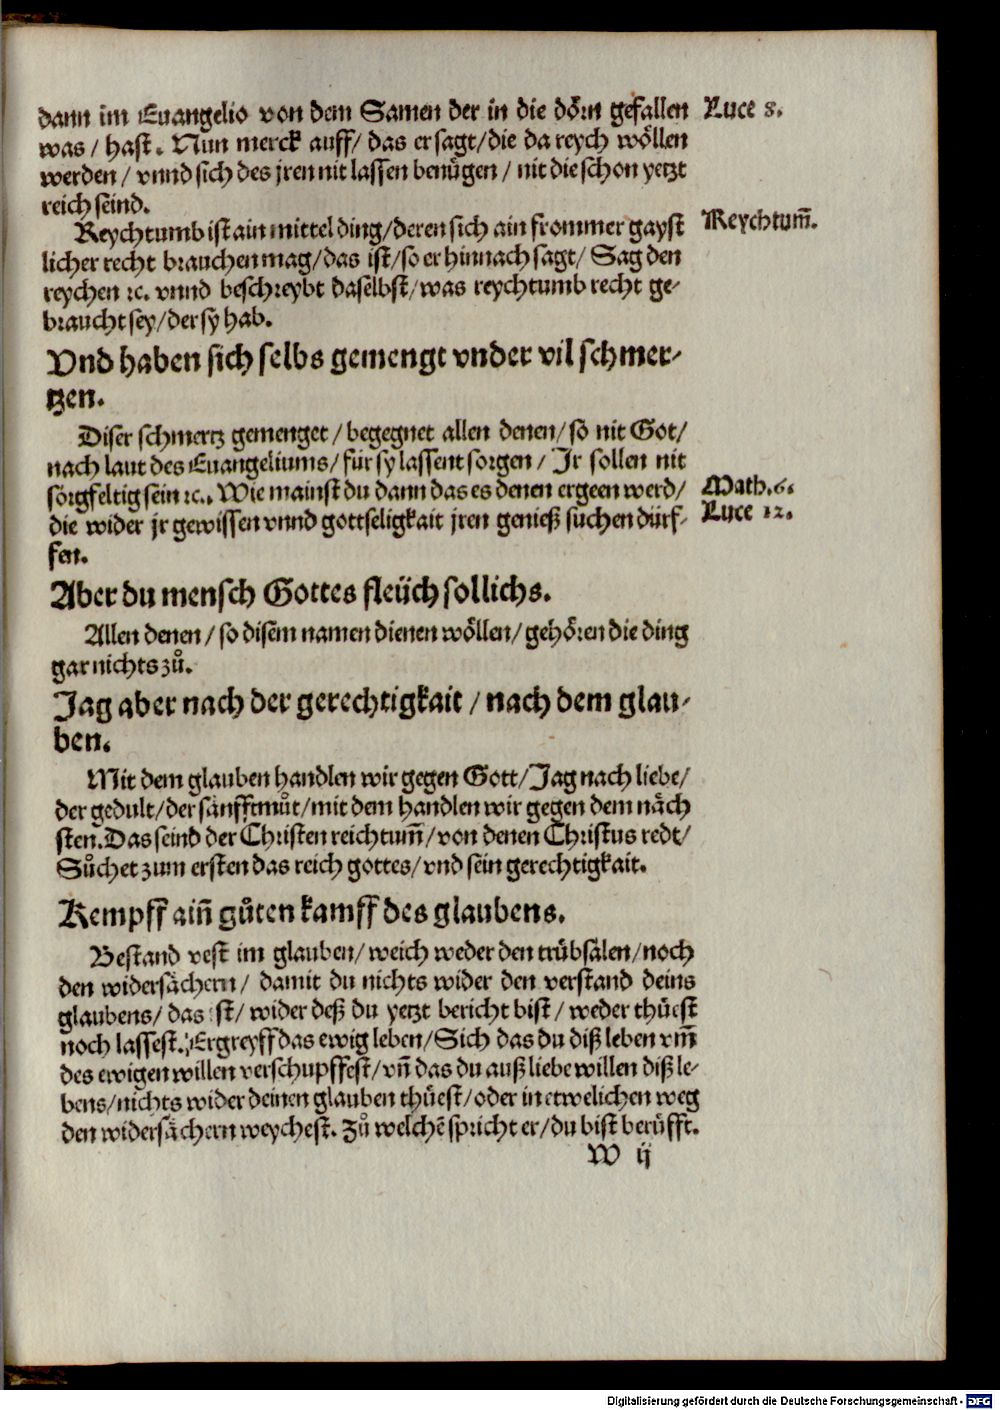 dann im Euangelio von dem Samen der in die dörn gefallen
Luce 8.
was / hast. Nun merck auff / das er sagt / die da reych wöllen
werden / vnnd sich des jren nit lassen benügen / nit die schon yetzt
reich seind.
Reychtumb ist ain mittel ding / deren sich ain frommer gayst
Reychtum̃.
licher recht brauchen mag / das ist / so er hinnach sagt / Sag den
reychen ꝛc. vnnd beschreybt daselbst / was reychtumb recht ge⸗
braucht sey / der sy hab.
Vnd haben sich selbs gemengt vnder vil schmer⸗
tzen.
Diser schmertz gemenget / begegnet allen denen / so nit Got /
nach laut des Euangeliums / für sy lassent sorgen / Ir sollen nit
sorgfeltig sein ꝛc. Wie mainst du dann das es denen ergeen werd /
Math. 6.
die wider jr gewissen vnnd gottseligkait jren genieß suchen dürf⸗
Luce 12.
fen.
Aber du mensch Gottes fleüch sollichs.
Allen denen / so disem namen dienen wöllen / gehören die ding
gar nichts zuͦ.
Jag aber nach der gerechtigkait / nach dem glau⸗
ben.
Mit dem glauben handlen wir gegen Gott / Jag nach liebe /
der gedult / der sänfftmuͦt / mit dem handlen wir gegen dem näch
sten. Das seind der Christen reichtum̃ / von denen Christus redt /
Suͦchet zum ersten das reich gottes / vnd sein gerechtigkait.
Kempff ain̄ guͦten kampff des glaubens.
Bestand vest im glauben / weich weder den trübsälen / noch
den widersächern / damit du nichts wider den verstand deins
glaubens / das ist / wider deß du yetzt bericht bist / weder thüest
noch lassest. Ergreyff das ewig leben / Sich das du diß leben vm̃
des ewigen willen verschupffest / vn̄ das du auß liebe willen diß le⸗
bens / nichts wider deinen glauben thüest / oder in etwelichen weg
den widersächern weychest. Zuͦ welchē spricht er / du bist berüfft.
W ij
Digitalisierung gefördert durch die Deutsche Forschungsgemeinschaft - DFG